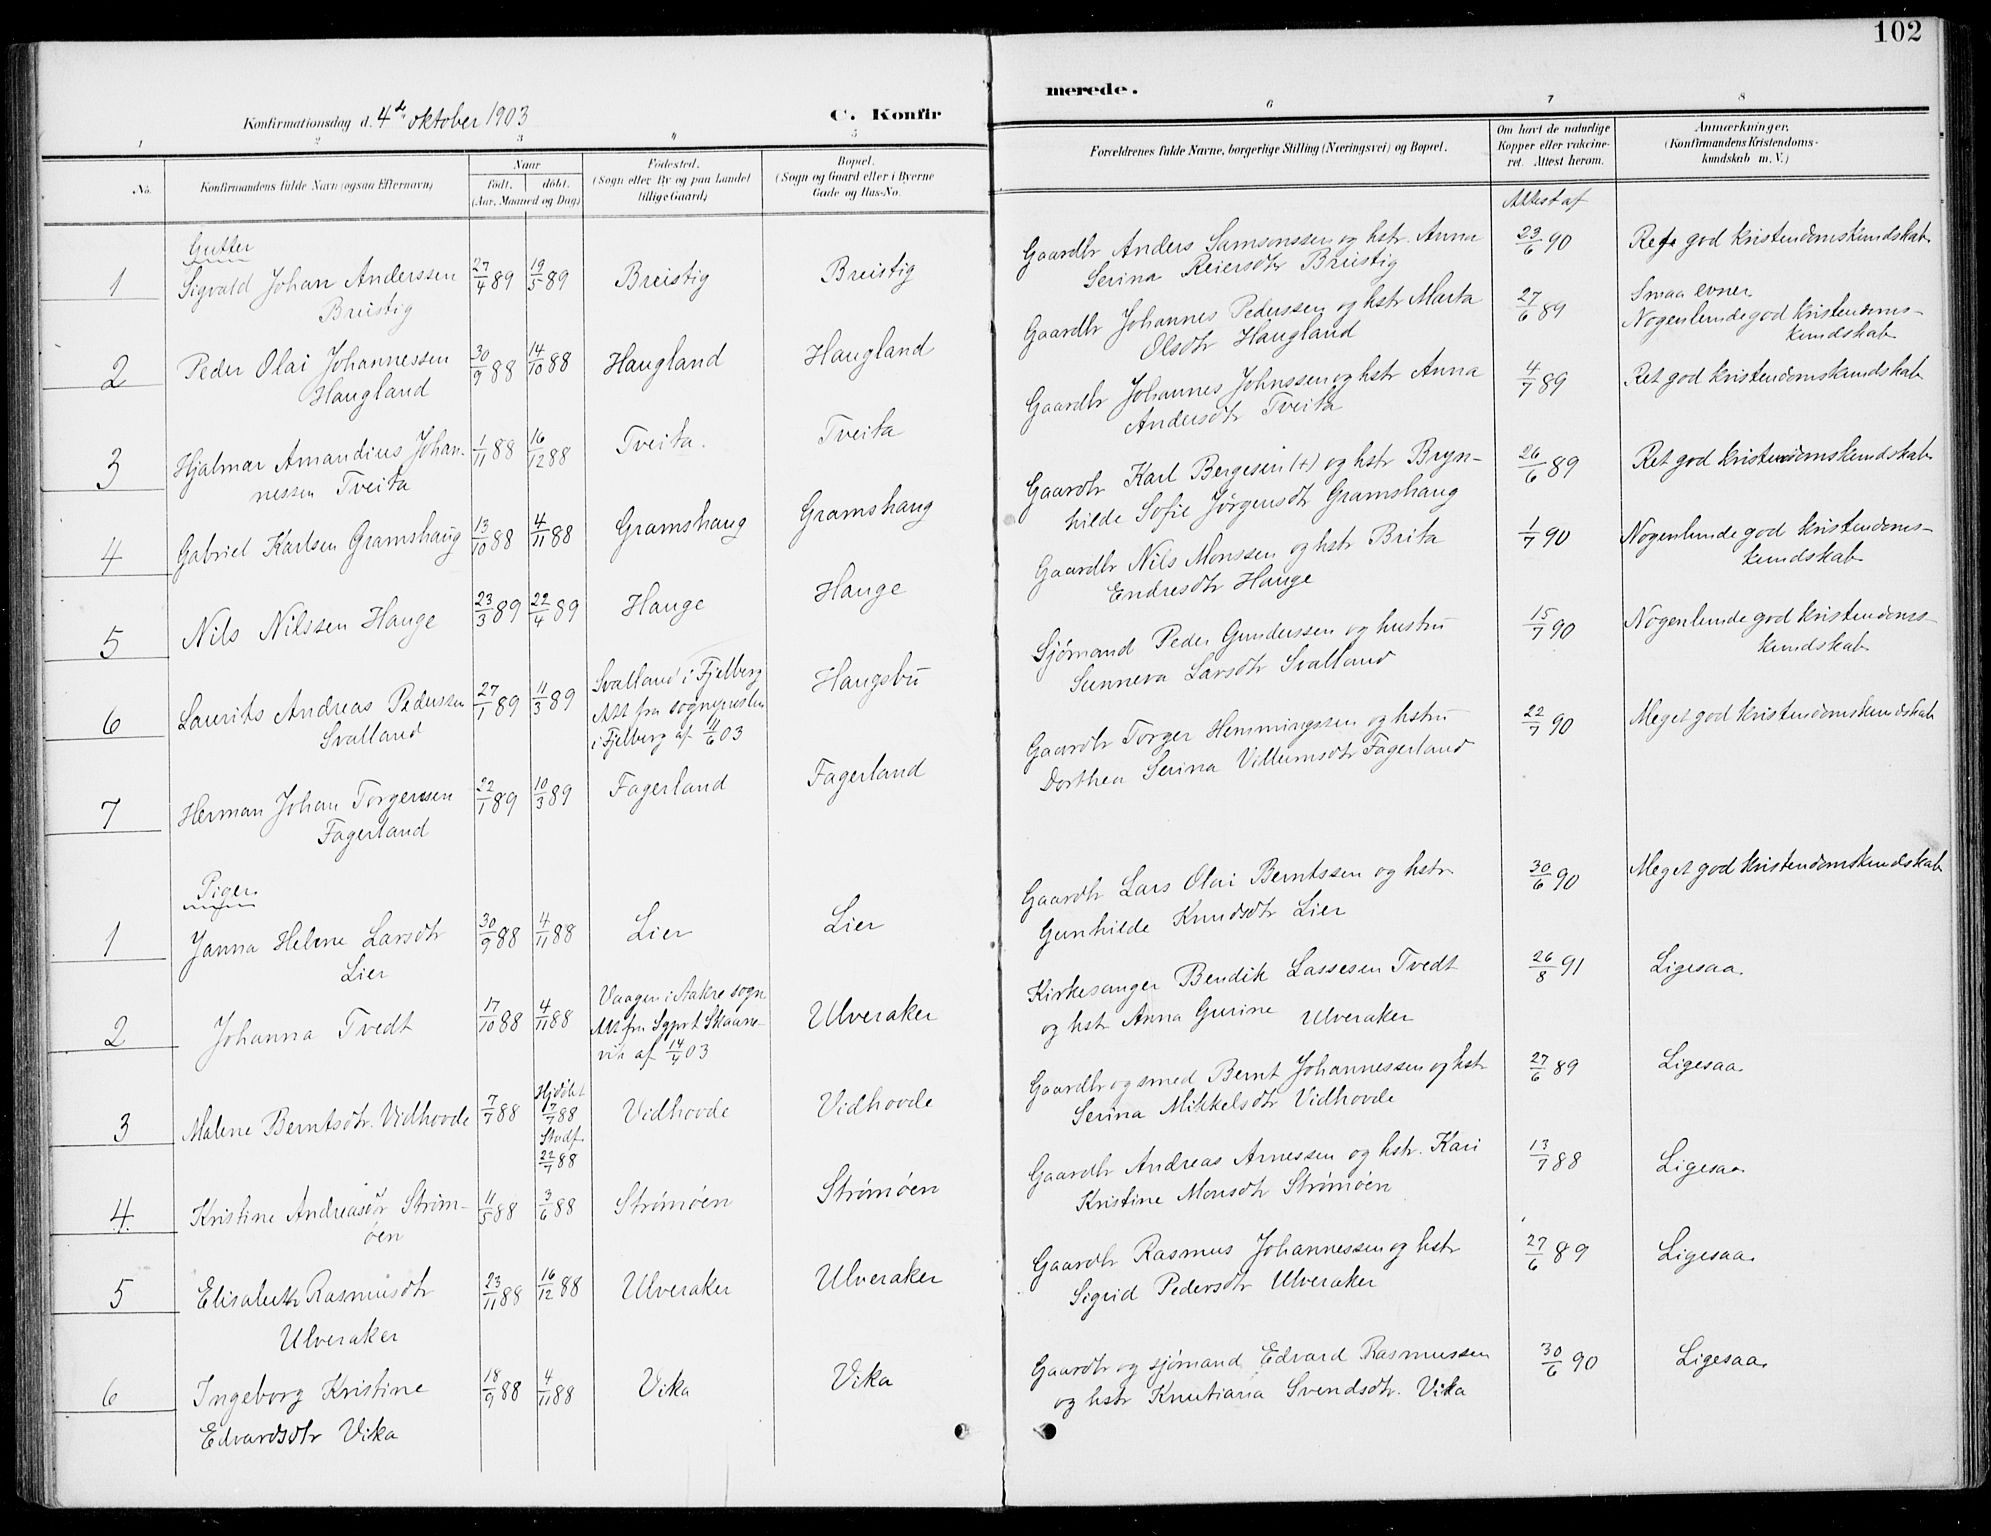 102
Konfirmationsdag d. 4de oktober 1903
C. Konfirmerede.
1 2 3 4 5 6 7 8
No.
Konfirmandens fulde Navn (ogsaa Efternavn)
Naar
født. døbt.
(Aar, Maaned og Dag)
Fødested.
(Sogn eller By og paa Landet
tillige Gaard)
Bopæl.
(Sogn og Gaard eller i Byerne
Gade og Hus-No.
Forældrenes fulde Navne, borgerlige Stilling (Næringsvei) og Bopæl.
Om havt de naturlige
Kopper eller vakcine-
ret. Attest herom.
Anmærkninger.
(Konfirmandens Kristendoms-
kundskab m. V.)
Attest af
Gutter
1 Sigvald Johan Anderssen 27/4 89 19/5 89 Breistig Breistig
Breistig
Gaardbr Anders Samsonssen og hstr. Anna 23/6 90 Ret god kristendomskundskab
Serina Reiersdtr Breistig
Smaa evner
2 Peder Olai Johannessen 30/9 88 14/10 88 Haugland Haugland
Haugland
Gaardbr Johannes Pederssen og hstr Marta 27/6 89 Nogenlunde god kristendoms-
Olsdtr Haugland kundskab
3 Hjalmar Amandius Johan- 1/11 88 16/12 88 Tveita. Tveita
nessen Tveita
Gaardbr Johannes Johnssen og hstr Anna 4/7 89 Ret god kristendomskundskab
Andersdtr Tveita
4 Gabriel Karlsen Gramshaug 13/10 88 4/11 88 Gramshaug Gramshaug
Gaardbr Karl Bergesen (+) og hstr Bryn- 26/6 89 Ret god kristendomskundskab
hilde Sofie Jørgensdtr Gramshaug
5 Nils Nilssen Hauge 23/3 89 22/4 89 Hauge Hauge
Gaardbr Nils Monssen og hstr Brita 1/7 90 Nogenlunde god kristendoms-
Endresdtr Hauge kundskab
6 Laurits Andreas Pederssen 27/1 89 11/3 89 Svalland i Fjelberg Haugsbu
Svalland Att fra sognepresten
i Fjelberg af 11/6 03
Sjømand Peder Gunderssen og hustru 15/7 90 Nogenlunde god kristendoms-
Sunneva Larsdtr Svalland kundskab
7 Herman Johan Torgerssen 22/1 89 10/3 89 Fagerland Fagerland
Fagerland
Gaardbr Torger Hemmingssen og hstru 22/7 90 Meget god kristendomskundskab
Dorthea Serina Villumsdtr Fagerland
Piger
1 Janna Helene Larsdtr 30/9 88 4/11 88 Lier Lier
Lier
Gaardbr Lars Olai Berntssen og hstr 30/6 90 Meget god kristendomskundskab
Gunhilde Knudsdtr Lier
2 Johanna Tvedt 17/10 88 4/11 88 Vaagen i Aakre sogn Ulveraker
Att fra Sgprt Skaane-
vik af 14/4 03
Kirkesanger Bendik Lassesen Tvedt 26/8 91 Ligesaa
og hstr Anna Gurine Ulveraker
3 Malene Berntsdtr. Vidhovde 7/7 88 Hjdøbt 7/7 88 Stadf. 22/7 88 Vidhovde Vidhovde
Gaardbr og smed Bernt Johannessen og hstr 27/6 89 Ligesaa
Serina Mikkelsdtr Vidhovde
4 Kristine Andreasdtr Strøm- 11/5 88 3/6 88 Strømøen Strømøen
øen
Gaardbr Andreas Arnessen og hstr. Kari 13/7 88 Ligesaa
Kristine Monsdtr Strømøen
5 Elisabeth Rasmusdtr 23/11 88 16/12 88 Ulveraker Ulveraker
Ulveraker
Gaardbr Rasmus Johannessen og hstr 27/6 89 Ligesaa
Sigrid Pedersdtr Ulveraker
6 Ingeborg Kristine 18/9 88 4/11 88 Vika Vika
Edvardsdtr Vika
Gaardbr og sjømand Edvard Rasmussen 30/6 90 Ligesaa
og hstr Knutiana Svendsdtr. Vika